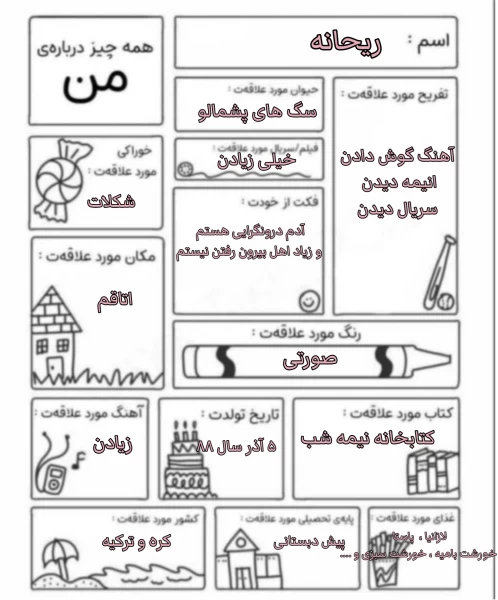 همه چیز درباره‌ی
من
اسم :
ریحانه
حیوان مورد علاقه‌ت :
سگ های پشمالو
تفریح مورد علاقه‌ت :
آهنگ گوش دادن
انیمه دیدن
سریال دیدن
خوراکی
مورد علاقه‌ت :
شکلات
فیلم/سریال مورد علاقه‌ت :
خیلی زیادن
فکت از خودت :
آدم درونگرایی هستم
و زیاد اهل بیرون رفتن نیستم
مکان مورد علاقه‌ت :
اتاقم
رنگ مورد علاقه‌ت :
صورتی
آهنگ مورد علاقه‌ت :
زیادن
تاریخ تولدت :
۵ آذر سال ۸۸
کتاب مورد علاقه‌ت :
کتابخانه نیمه شب
کشور مورد علاقه‌ت :
کره و ترکیه
پایه‌ی تحصیلی مورد علاقه‌ت :
پیش دبستانی
غذای مورد علاقه‌ت :
لازانیا ، پاستا،
خورشت بامیه ، خورشت سبزی و ....